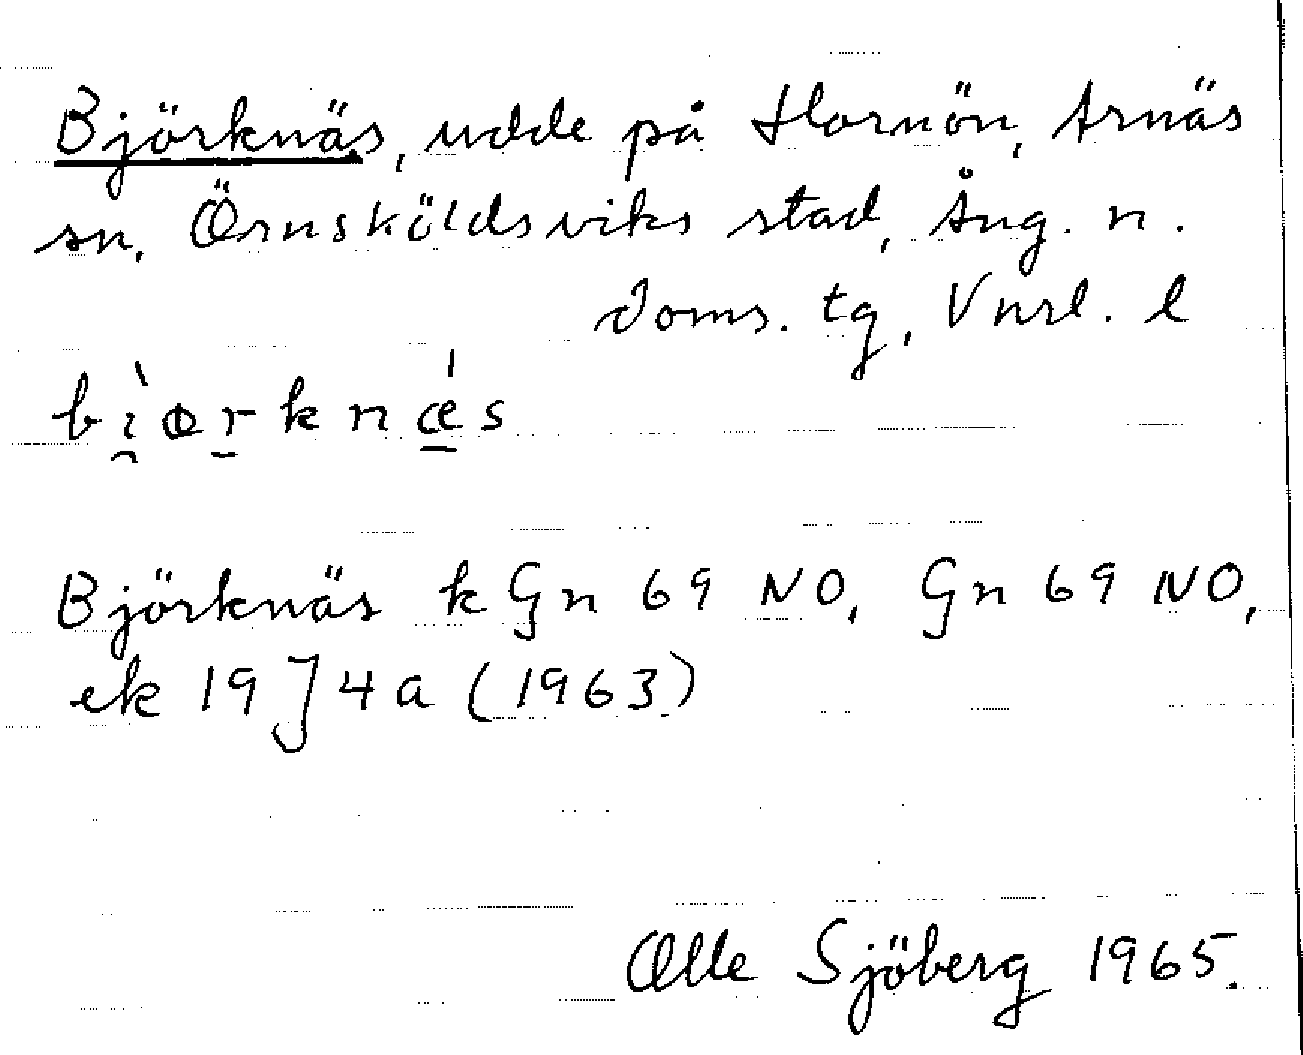 Björknäs, udde på Hornön, Arnäs
sn, Örnsköldsviks stad, Ång. n.
doms. tg, Vnrl. l
bì̯ɵr̠knǽ̠s
Björknäs k Gn 69 NO, Gn 69 NO,
ek 19 J 4 a (1963)
Olle Sjöberg 1965.